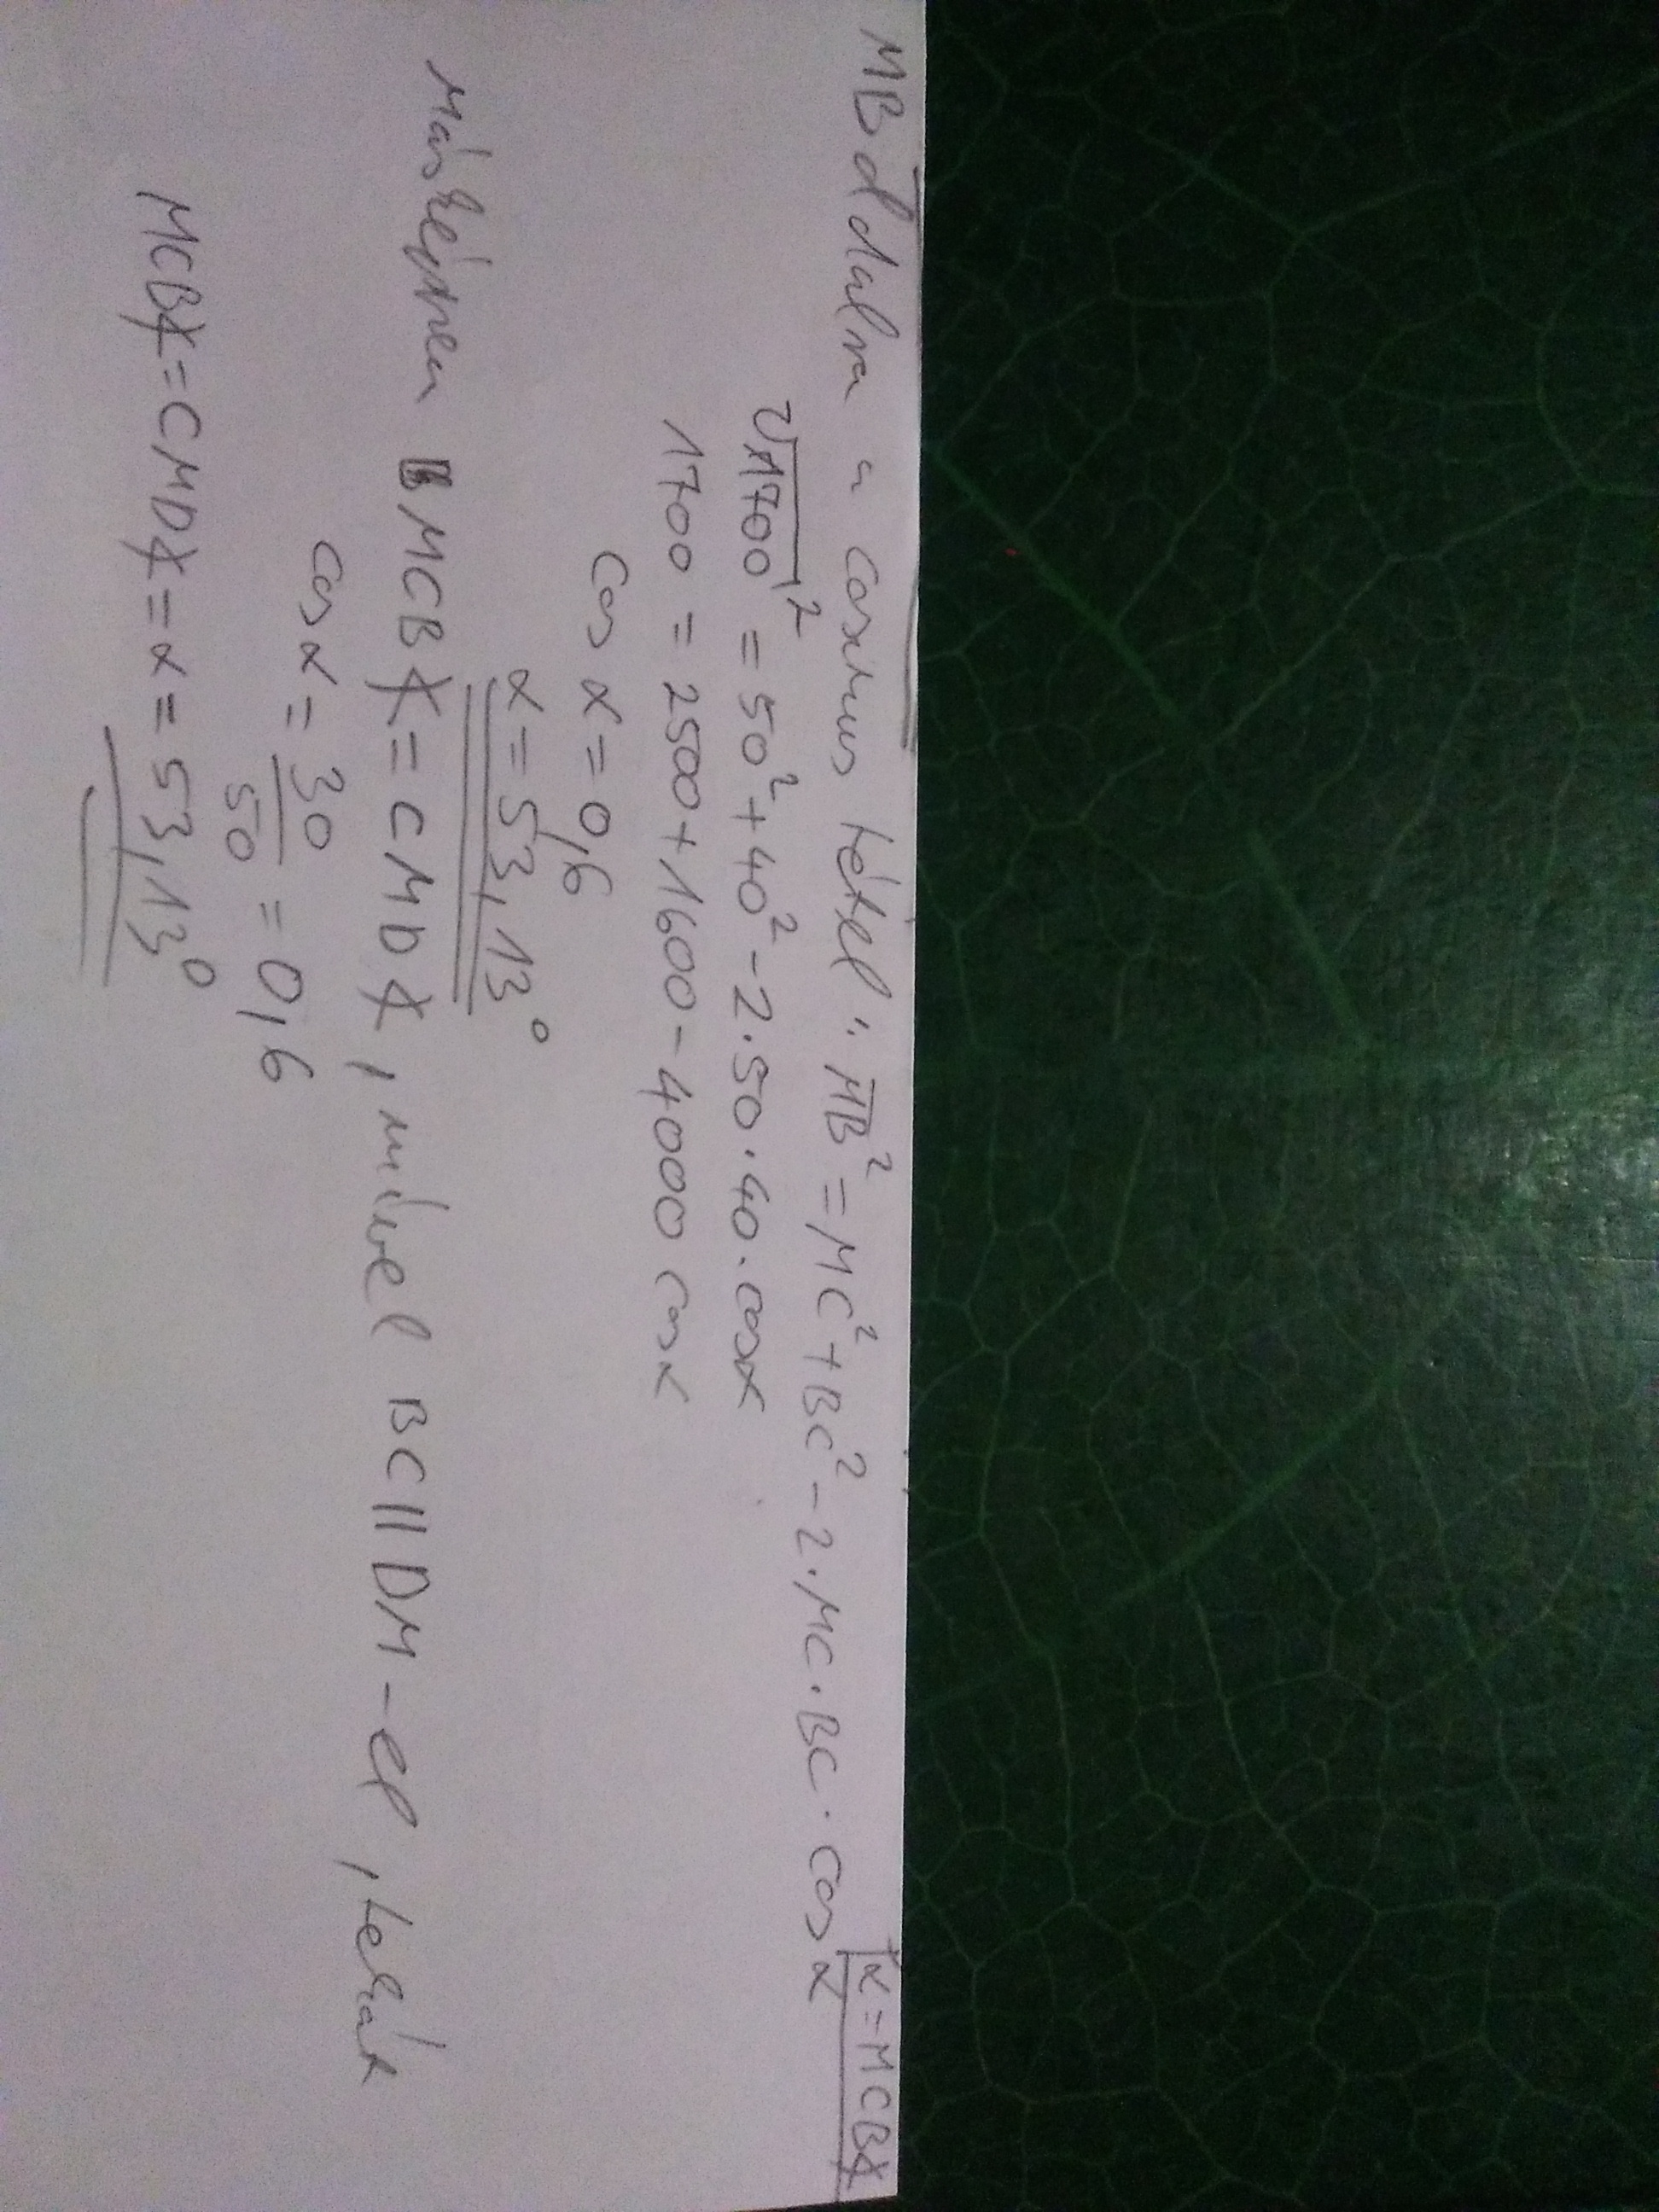 α = MCB∢
MB oldalra a cosinus tétel: MB² = MC² + BC² - 2·MC·BC·cos α
√1700² = 50² + 40² - 2·50·40·cosα
1700 = 2500 + 1600 - 4000 cos α
cos α = 0,6
α = 53,13°
Másképpen MCB∢ = CMD∢, mivel BC || DM-el, tehát
cos α = 30/50 = 0,6
MCB∢ = CMD∢ = α = 53,13°